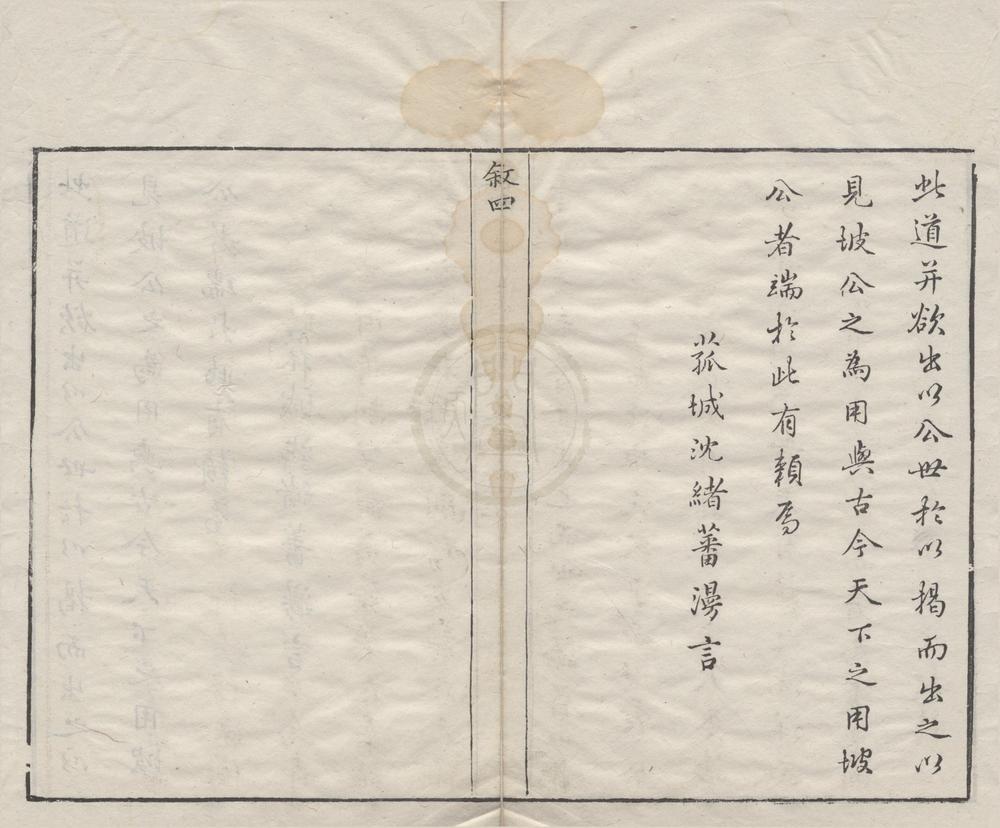 此道并欲出以公世於以揭而出之以
見坡公之為用與古今天下之用坡
公者端於此有賴焉
菰城沈緒蕃漫言
敘四